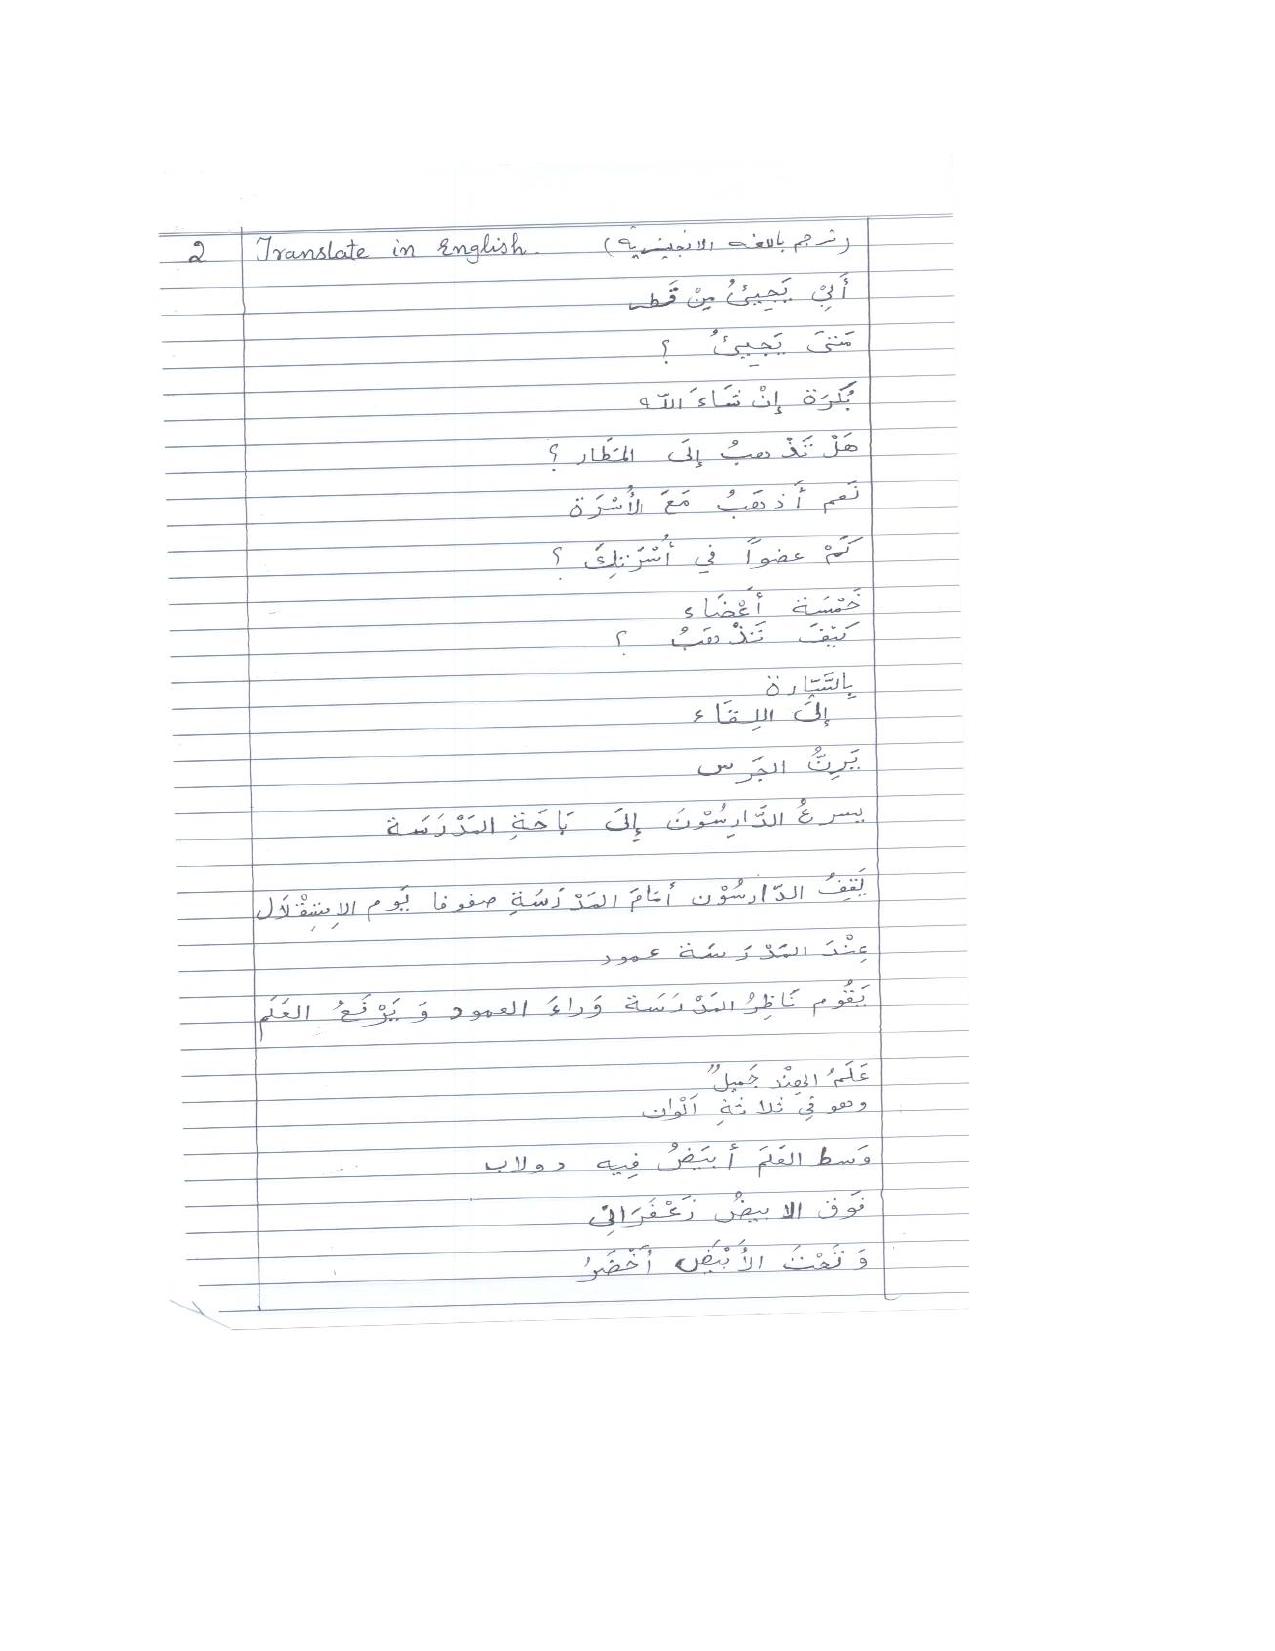 2 Translate in English. (ترجم باللغه الانجيزية)
أَبِيْ يَجِيئُ مِنْ قَطر
مَتىَ يَجِيئُ ؟
بُكرَة إِنْ شَاءَ الله
هَلْ تَذْهبُ إِلَى المَطار ؟
نَعم أَذهَبُ مَعَ الأُسْرَة
كَمْ عضواً في أُسْرَتِكَ ؟
خَمْسَة أَعْضَاء
كَيْفَ تَذْهَبُ ؟
بِالسَّيَّارة
إِلىَ اللِقَاء
يَرِنُّ الجَرس
يسرعُ الدَّارِسُوْنَ إِلىَ بَاحَةِ المَدْرَسَة
يَقِفُ الدّارسُوْن أمَامَ المَدْرَسَةِ صفوفا يَوم الاِسْتِقْلَال
عِنْدَ المَدْرَسَة عمود
يَقُوم نَاظِرُ المَدْرَسَة وَراءَ العمود وَ يَرْفَعُ العَلَم
عَلَمُ الهِنْد جَمِيلٌ
وهو في ثلاثةِ اَلْوان
وَسط العَلَم أبيَضُ فِيه دولاب
فَوق الابيضُ زَعْفَرَانِي
وَ تَحْتَ الأَبْيَضِ أَخْضَرُ